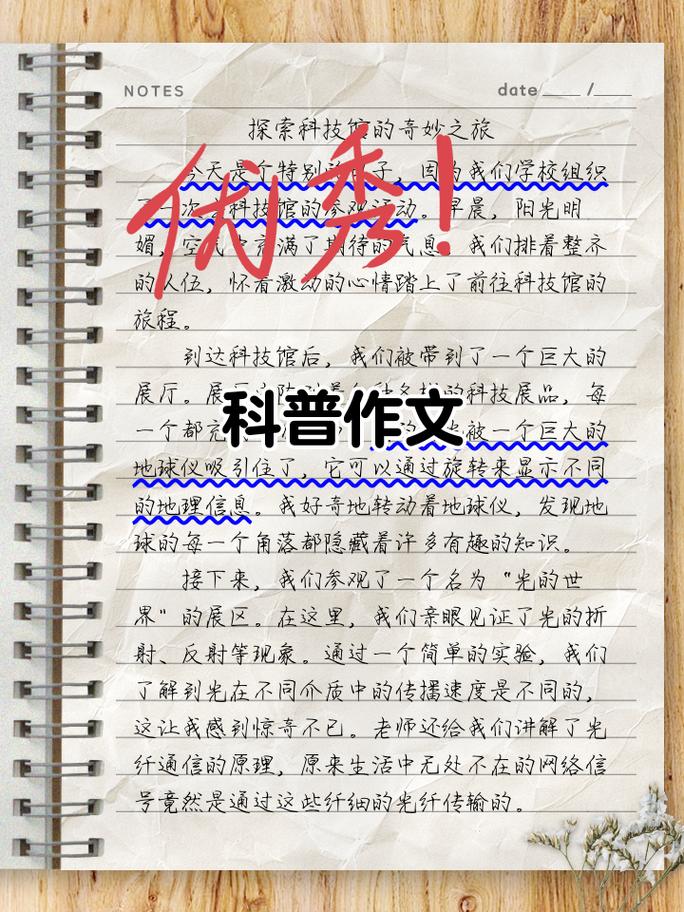 NOTES
date ____ /____
探索科技馆的奇妙之旅
今天是个特别的日子，因为我们学校组织
了一次去科技馆的参观活动。早晨，阳光明
媚，空气中充满了期待的气息。我们排着整齐
的队伍，怀着激动的心情踏上了前往科技馆的
旅程。
优秀！
到达科技馆后，我们被带到了一个巨大的
展厅。展 科技展品，每
一个都充 被一个巨大的
科普作文
地球仪吸引住了，它可以通过旋转来显示不同
的地理信息。我好奇地转动着地球仪，发现地
球的每一个角落都隐藏着许多有趣的知识。
接下来，我们参观了一个名为“光的世
界”的展区。在这里，我们亲眼见证了光的折
射、反射等现象。通过一个简单的实验，我们
了解到光在不同介质中的传播速度是不同的，
这让我感到惊奇不已。老师还给我们讲解了光
纤通信的原理，原来生活中无处不在的网络信
号竟然是通过这些纤细的光纤传输的。